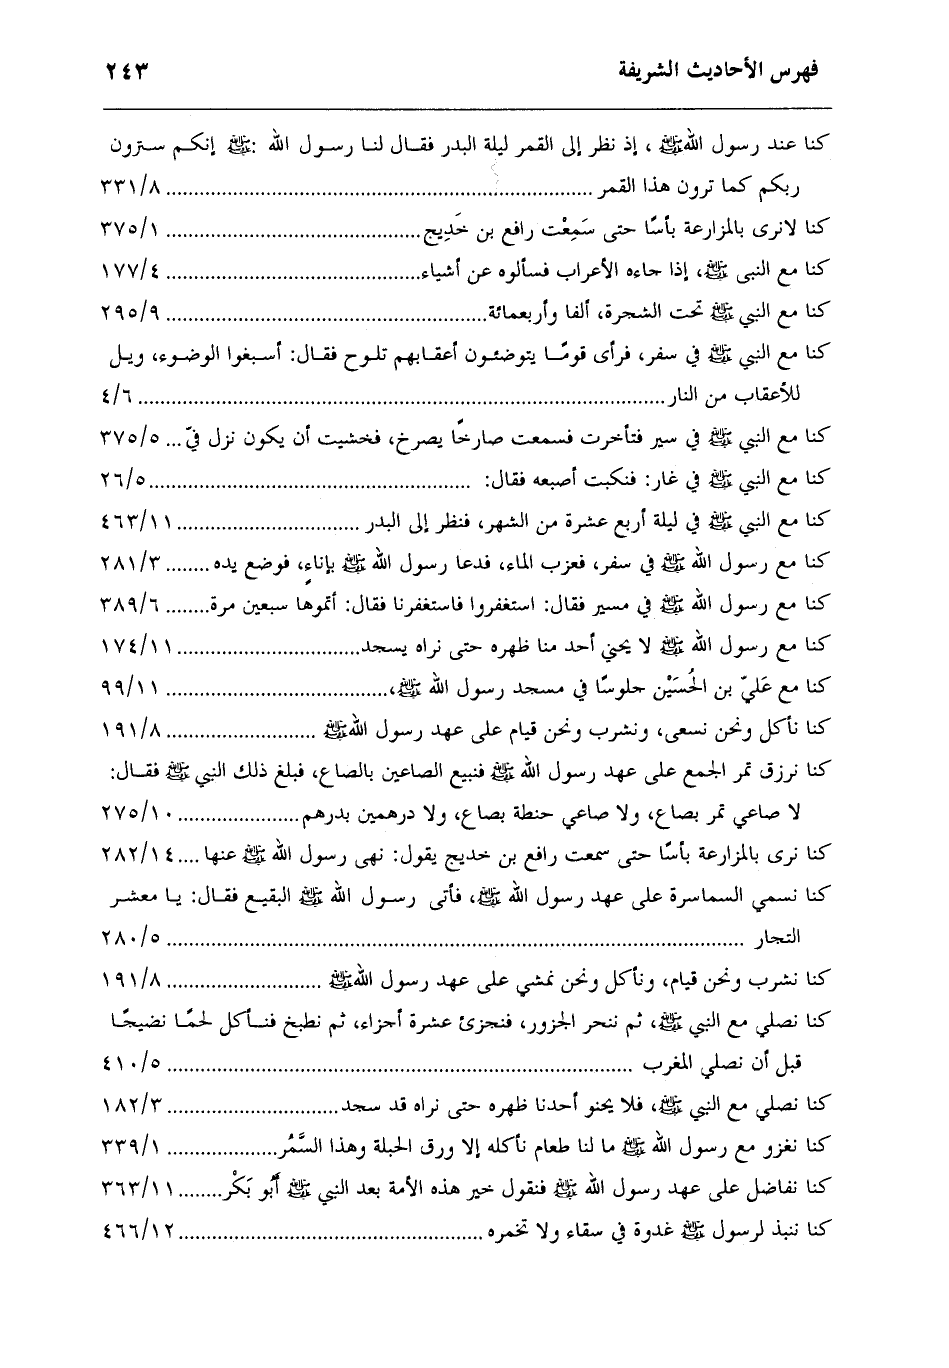 فهرس الأحاديث الشريفة ٢٤٣
كنا عند رسول اللهﷺ ، إذ نظر إلى القمر ليلة البدر فقال لنا رسول الله :ﷺ إنكم سترون
ربكم كما ترون هذا القمر ........ ٣٣١/٨
كنا لانرى بالمزارعة بأسًا حتى سَمِعْت رافع بن خَدِيج ........ ٣٧٥/١
كنا مع النبى ﷺ، إذا جاءه الأعراب فسألوه عن أشياء ........ ١٧٧/٤
كنا مع النبي ﷺ تحت الشجرة، ألفا وأربعمائة ........ ٢٩٥/٩
كنا مع النبي ﷺ في سفر، فرأى قومًا يتوضئون أعقابهم تلوح فقال: أسبغوا الوضوء، ويل
للأعقاب من النار ........ ٤/٦
كنا مع النبي ﷺ في سير فتأخرت فسمعت صارخًا يصرخ، فخشيت أن يكون نزل فيّ... ٣٧٥/٥
كنا مع النبي ﷺ في غار: فنكبت أصبعه فقال: ........ ٢٦/٥
كنا مع النبي ﷺ في ليلة أربع عشرة من الشهر، فنظر إلى البدر ........ ٤٦٣/١١
كنا مع رسول الله ﷺ في سفر، فعزب الماء، فدعا رسول الله ﷺ بإناءٍ، فوضع يده ........ ٢٨١/٣
كنا مع رسول الله ﷺ في مسير فقال: استغفروا فاستغفرنا فقال: أتموها سبعين مرة ........ ٣٨٩/٦
كنا مع رسول الله ﷺ لا يحني أحد منا ظهره حتى نراه يسجد ........ ١٧٤/١١
كنا مع عَليّ بن الحُسَيْن جلوسًا في مسجد رسول الله ﷺ، ........ ٩٩/١١
كنا نأكل ونحن نسعى، ونشرب ونحن قيام على عهد رسول اللهﷺ ........ ١٩١/٨
كنا نرزق تمر الجمع على عهد رسول الله ﷺ فنبيع الصاعين بالصاع، فبلغ ذلك النبي ﷺ فقال:
لا صاعي تمر بصاع، ولا صاعي حنطة بصاع، ولا درهمين بدرهم ........ ٢٧٥/١٠
كنا نرى بالمزارعة بأسًا حتى سمعت رافع بن خديج يقول: نهى رسول الله ﷺ عنها.... ٢٨٢/١٤
كنا نسمي السماسرة على عهد رسول الله ﷺ، فأتى رسول الله ﷺ البقيع فقال: يا معشر
التجار ........ ٢٨٠/٥
كنا نشرب ونحن قيام، ونأكل ونحن نمشي على عهد رسول اللهﷺ ........ ١٩١/٨
كنا نصلي مع النبي ﷺ، ثم ننحر الجزور، فنجزئ عشرة أجزاء، ثم نطبخ فنأكل لحمًا نضيجًا
قبل أن نصلي المغرب ........ ٤١٠/٥
كنا نصلي مع النبي ﷺ، فلا يحنو أحدنا ظهره حتى نراه قد سجد ........ ١٨٢/٣
كنا نغزو مع رسول الله ﷺ ما لنا طعام نأكله إلا ورق الحبلة وهذا السَّمُر ........ ٣٣٩/١
كنا نفاضل على عهد رسول الله ﷺ فنقول خير هذه الأمة بعد النبي ﷺ أَبُو بَكْر ........ ٣٦٣/١١
كنا ننبذ لرسول ﷺ غدوة في سقاء ولا تخمره ........ ٤٦٦/١٢